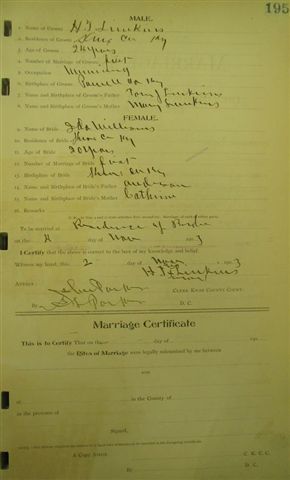 195
MALE.
1. Name of Groom H T Jenkins
2. Residence of Groom Knox Co Ky
3. Age of Groom 24 years
4. Number of Marriage of Groom first
5. Occupation
6. Birthplace of Groom Co Ky
7. Name and Birthplace of Groom's Father Jenkins
8. Name and Birthplace of Groom's Mother Mary Jenkins
FEMALE.
9. Name of Bride Ida Williams
10. Residence of Bride Knox Co Ky
11. Age of Bride 20 years
12. Number of Marriage of Bride first
13. Birthplace of Bride Knox Co Ky
14. Name and Birthplace of Bride's Father Anderson
15. Name and Birthplace of Bride's Mother Catherine
16. Remarks
To be married at Residence of Bride
on the 4 day of Nov 1903
I Certify that the above is correct to the best of my knowledge and belief.
Witness my hand, this 2 day of Nov 1903
H T Jenkins
Attest:
Clerk Knox County Court.
By Parker D. C.
Marriage Certificate
This is to Certify That on the day of 190
the Rites of Marriage were legally solemnized by me between
and
at in the County of
in the presence of
Signed,
A Copy Attest: C. K. C. C.
By D. C.